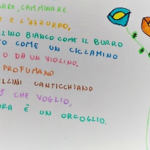 CAMMINARE
E L'AZZURRO,
LINO BIANCO COME IL BURRO
TO COME UN CICLAMINO
O DA UN VIOLINO.
PROFUMANO
LLINI CANTICCHIANO
CHE VOGLIO,
RA È UN ORGOGLIO.